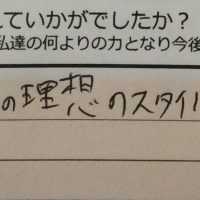 ていかがでしたか?
私達の何よりの力となり今後
の理想のスタイル